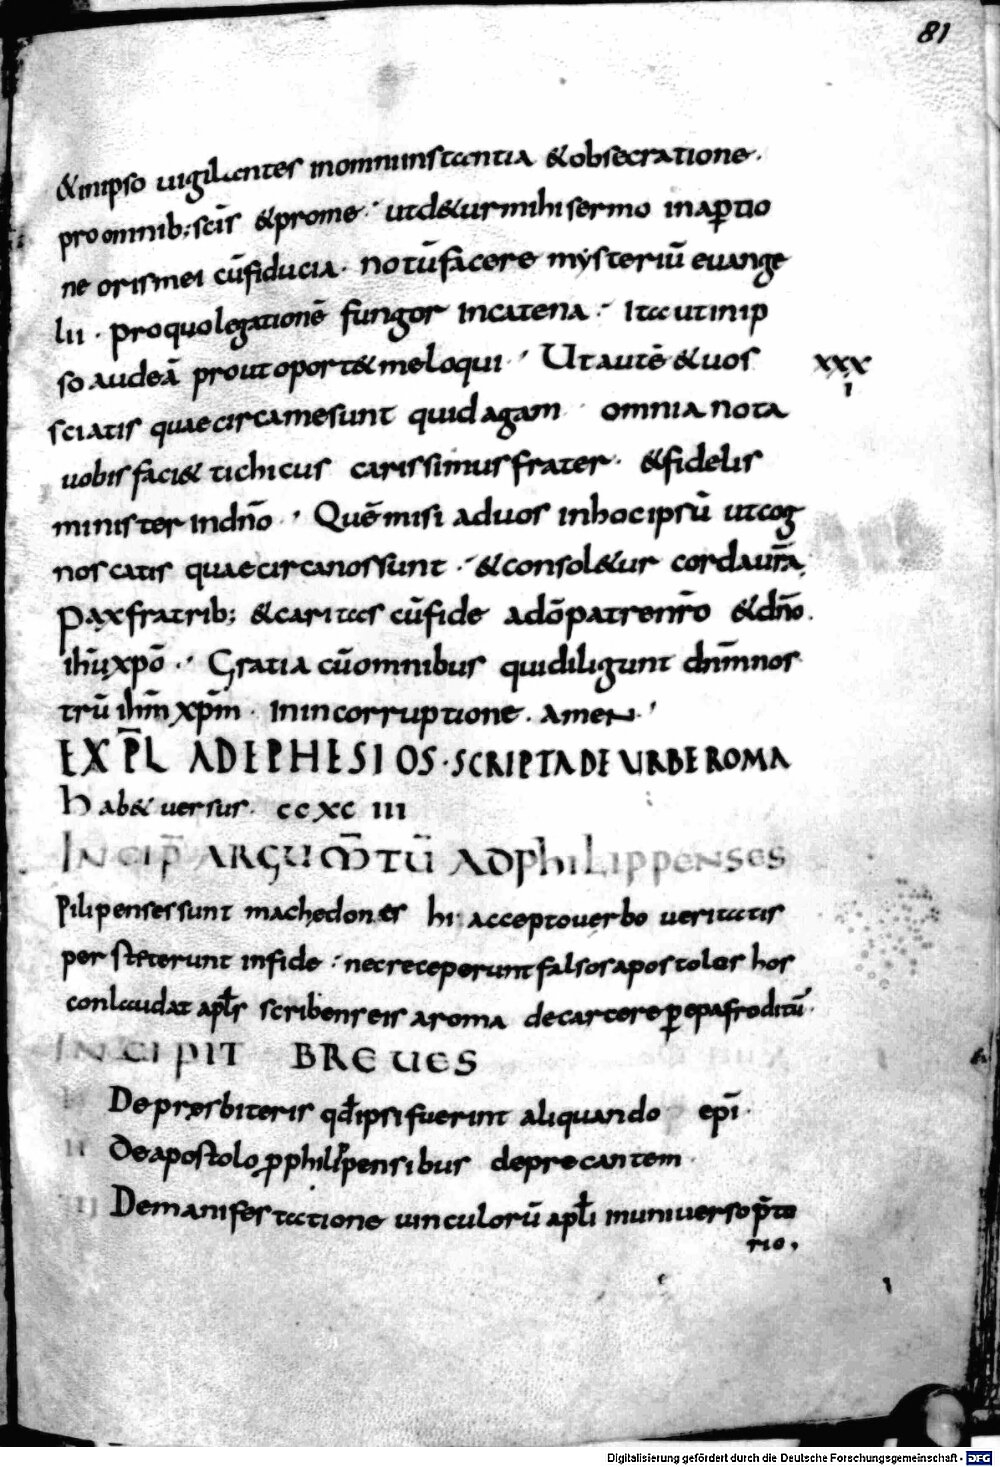 81
&inipso uigilantes inomniinstantia &obsecratione.
proomnib; scīs &prome. utd&urmihi sermo inaꝑtio
ne orismei cūfiducia. notūfacere mysteriū euange
lii. proquolegatione̅ fungor incatena. Ita utinip
so audeā prout oport&meloqui. Ut autē &uos
xxx
i
sciatis quaecircamesunt quid agam omnia nota
uobis faci& tichicus carissimus frater. &fidelis
minister indn̄o. Quēmisi aduos inhocipsū utcog
noscatis quaecircanossunt. &consol&ur cordaur̄a,
Paxfratrib; &caritas cūfide adōpatrenr̄o &dn̄o.
ih̄uxpō. Gratia cūomnibus quidiligunt dn̄mnos
trū ih̄m xp̄m. inincorruptione. amen.
EXP̄L ADEPHESIOS. SCRIPTADE URBE ROMA
hab& uersus. ccxc iii
INCIP̄ ARGUM̄TŪ ADPhiLIPPENSES
Pilipenses sunt machedones hi acceptouerbo ueritatis
persteterunt infide. necreceperuntfalsosapostolos hos
conlaudat apl̄s scribenseis aroma decarcere ꝑepafroditū.
INCIPIT BREUES
I Depresbiteris qd̄ipsifuerint aliquando ep̄i.
II Deapostolo ꝓphilippensibus deprecantem.
III Demanifestatione uinculorū apl̄i inuniuersop̄to
rio,
Digitalisierung gefördert durch die Deutsche Forschungsgemeinschaft - DFG